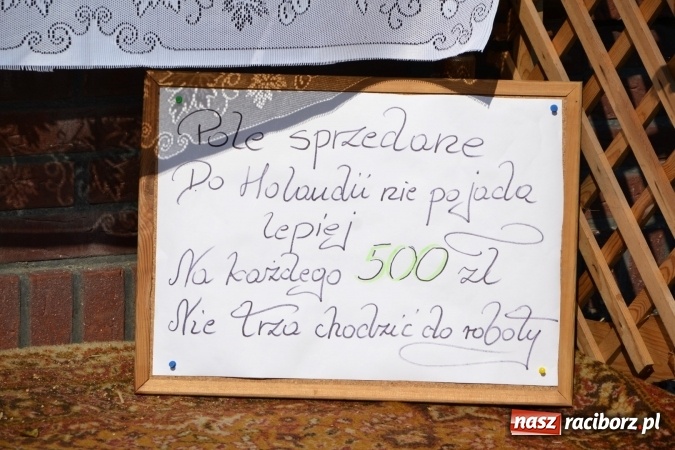 Pole sprzedane
Do Holandii nie pojada
lepiej
Na każdego 500 zl
Nie trza chodzić do roboty
nasz raciborz.pl